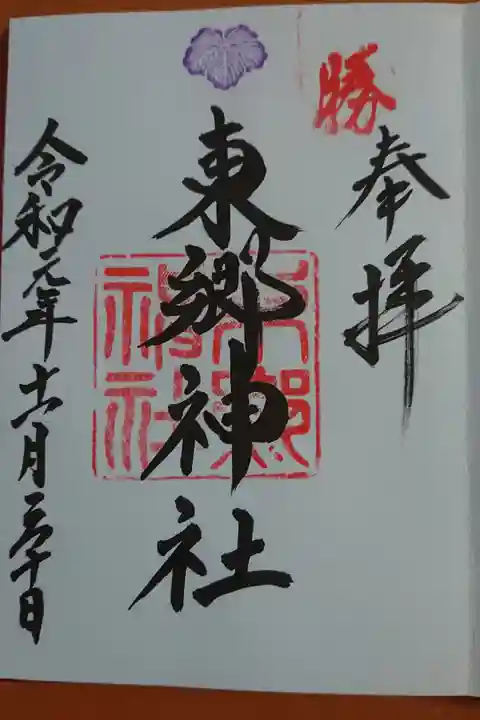 勝
奉拝
東郷神社
東郷
神社
令和元年十一月三十日